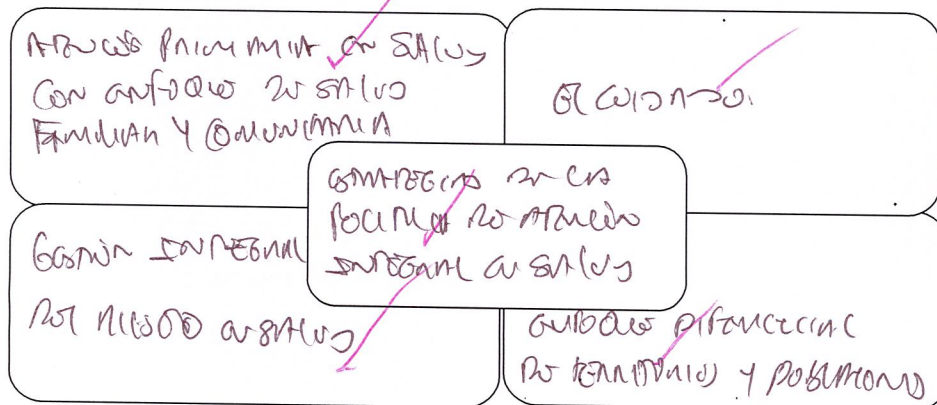 ATENCIÓN PRIMARIA EN SALUD
CON ENFOQUE DE SALUD
FAMILIAR Y COMUNITARIA
EL CUIDADO.
ESTRATEGIAS DE LA
POLITICA DE ATENCIÓN
INTEGRAL EN SALUD
GESTIÓN INTEGRAL
DEL RIESGO EN SALUD
ENFOQUE DIFERENCIAL
DE TERRITORIOS Y POBLACIONES